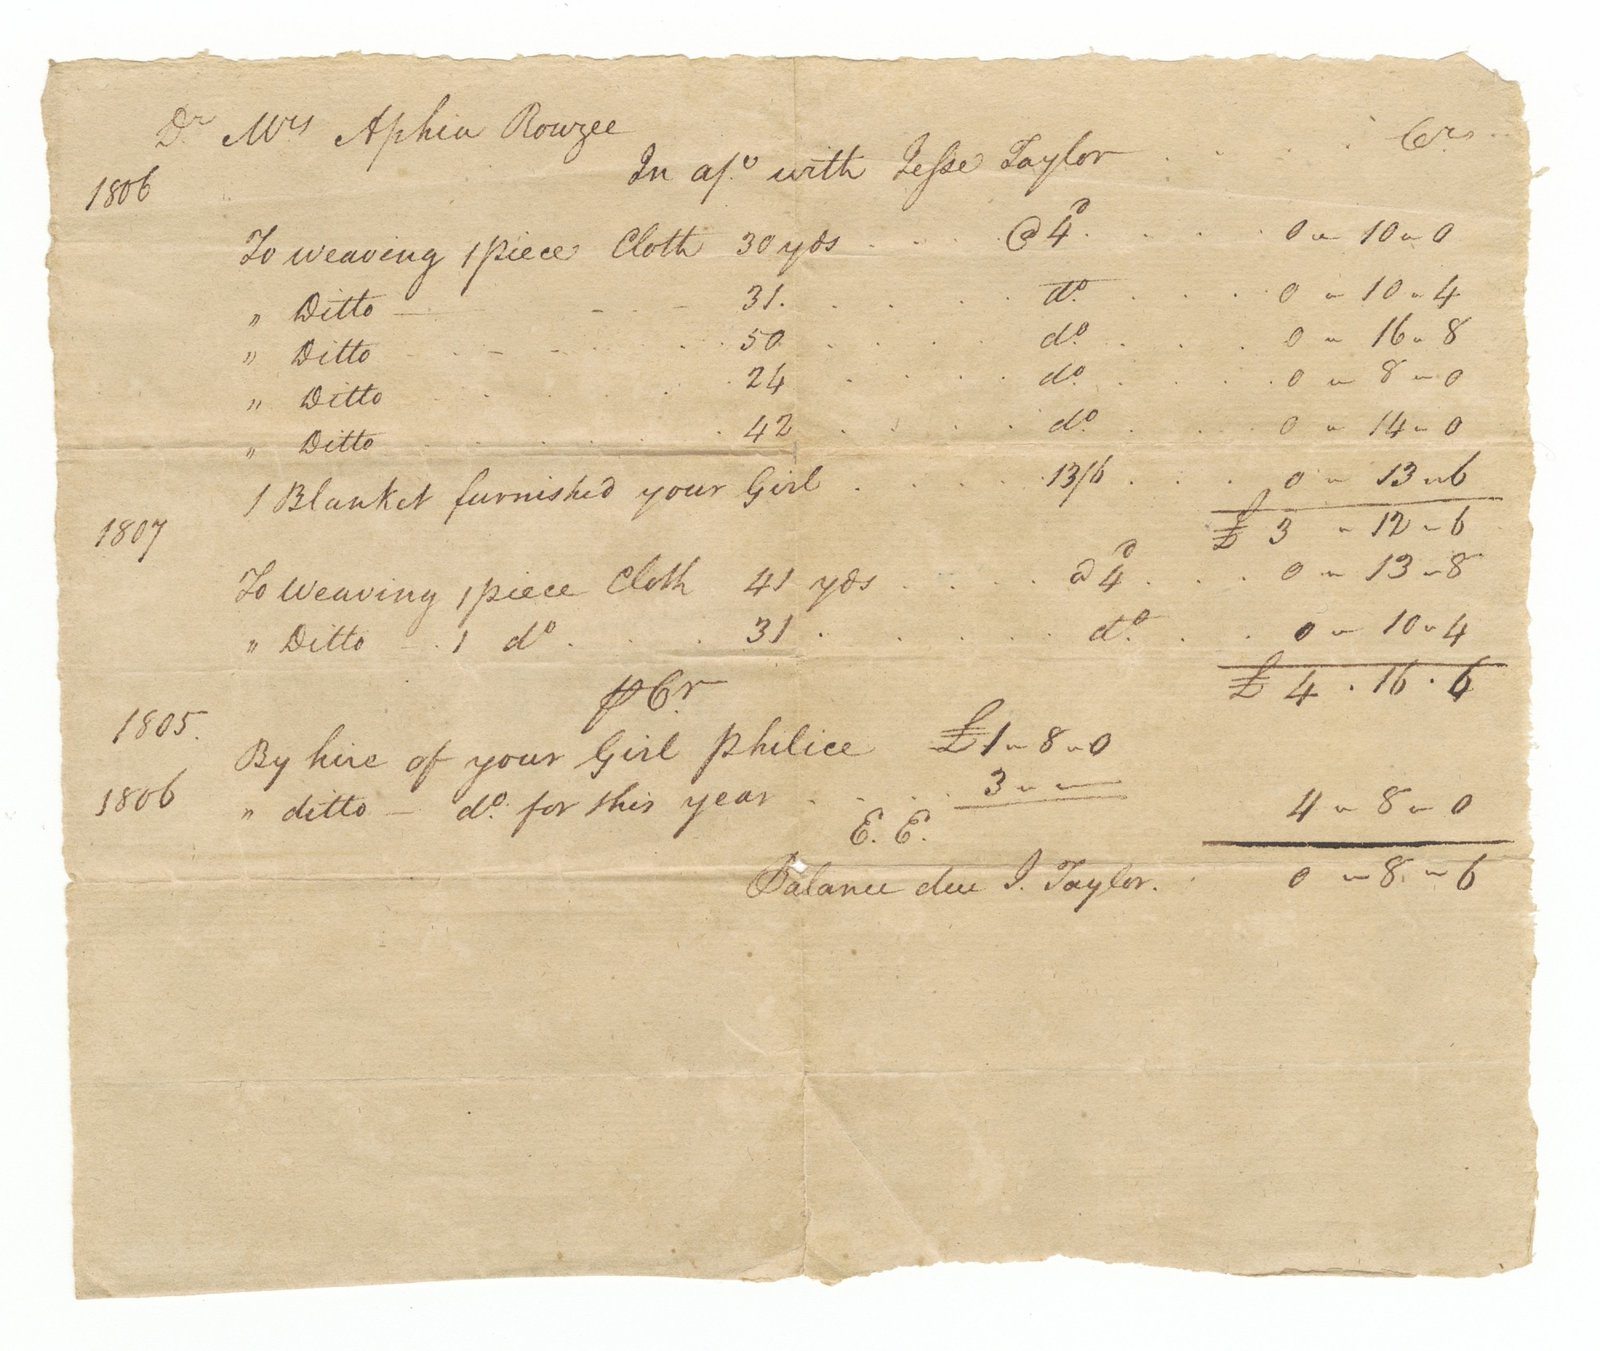 Dr Mrs Aphia Rowzee Cr
1806 In a/c with Jesse Taylor
To weaving 1 piece Cloth 30 yds @ 4d 0 " 10 " 0
" Ditto 31. do. 0 " 10 " 4
" Ditto 50 do. 0 " 16 " 8
" Ditto 24 do. 0 " 8 " 0
" Ditto 42 do. 0 " 14 " 0
1 Blanket furnished your Girl 13/6 0 " 13 " 6
1807 £ 3 " 12 " 6
To Weaving 1 piece Cloth 41 yds @ 4d 0 " 13 " 8
" Ditto 1 do. 31 do. 0 " 10 " 4
£ 4 . 16 . 6
Cr
1805. By hire of your Girl Philice £1 " 8 " 0
1806 " ditto - do. for this year 3 " " 4 " 8 " 0
E. E.
Balance due J. Taylor. 0 " 8 " 6